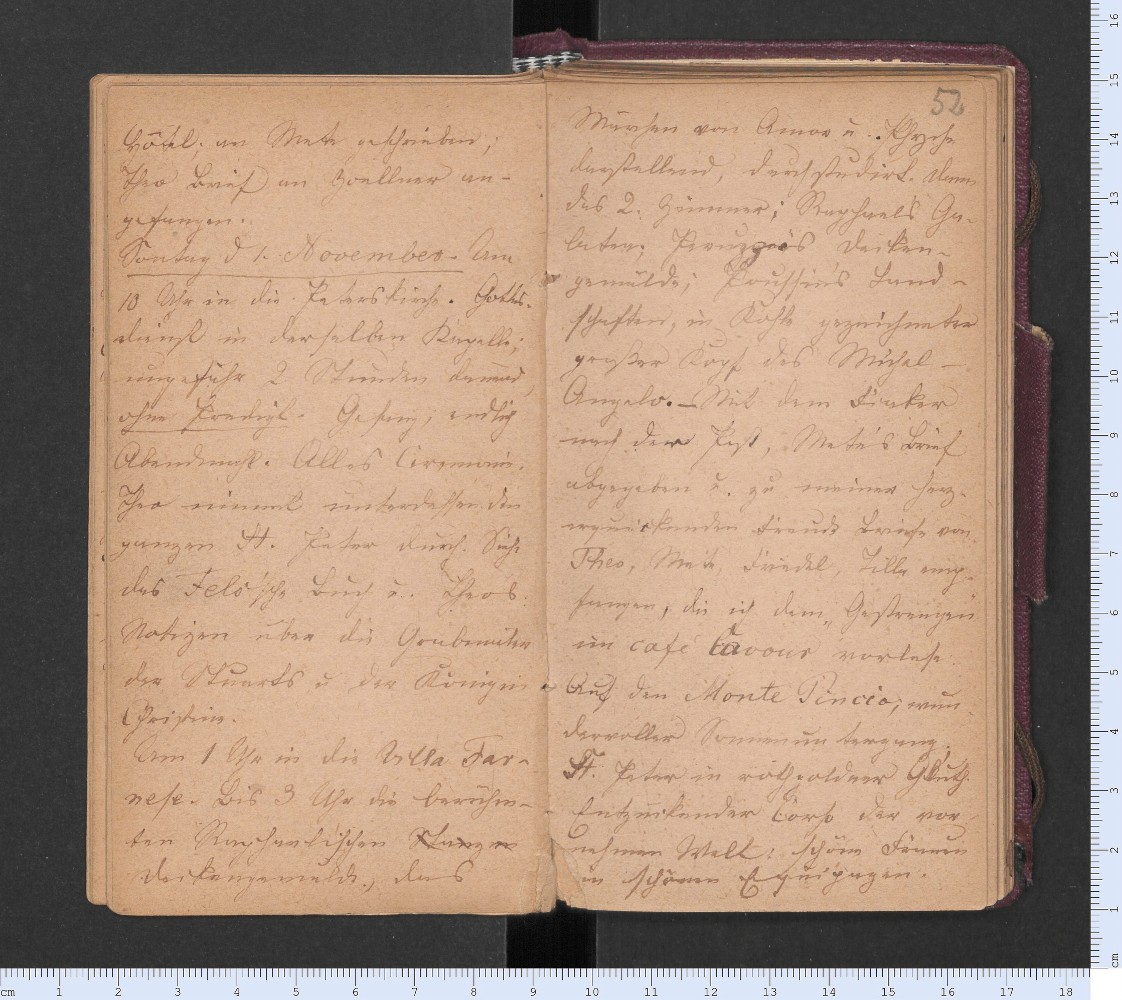 Hôtel; an Mete geschrieben;
Theo Brief an Zoellner an-
gefangen.
Sontag d 1. November. Um
10 Uhr in die Peterskirche. Gottes-
dienst in derselben Kapelle;
ungefähr 2 Stunden dauernd,
ohne Predigt. Gesang; endlich
Abendmahl. Alles Ceremonie.
Theo nimmt unterdessen den
ganzen St. Peter durch. Sieht
das Fels'sche Buch u. Theos
Notizen über die Grabmäler
der Stuarts u. der Königin
Christine.
Um 1 Uhr in die Villa Far-
nese. Bis 3 Uhr die berühm-
ten Raphaelischen Stanzen
Deckengemälde, das
52
Märchen von Amor u. Psyche
darstellend, durchstudirt. Dann
das 2. Zimmer; Raphaels Ga-
latea; Peruzzis Decken-
gemälde; Poussins Land-
schaften, in Kohle gezeichneter
großer Kopf des Michel-
Angelo. – Mit dem Fiaker
nach der Post, Mete's Brief
abgegeben u. zu meiner herz-
erquickenden Freude Briefe von
Theo, Mete, Friedel, Tilla emp-
fangen, die ich dem "Gestrengen
im café Cavour vorlese.
Auf den Monte Pincio; wun-
dervoller Sonnenuntergang;
St. Peter in rothgoldner Gluth.
Entzückender Corso der vor-
nehmen Welt: schöne Frauen
in schönen Equipagen.